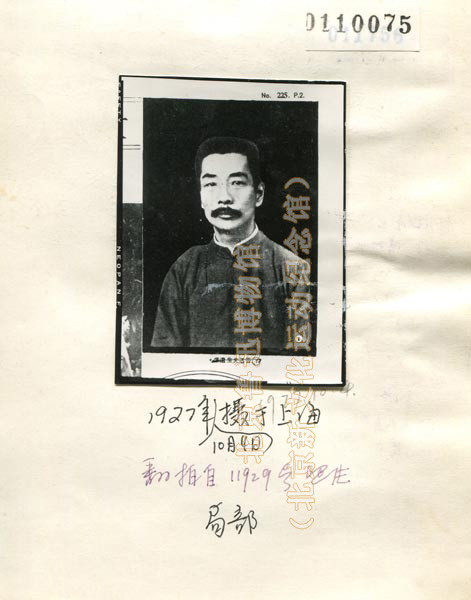 0110075
No. 225. P.2.
NEOPAN F
北京鲁迅博物馆
(北京新文化运动纪念馆)
1927年摄于上海
10月4日
翻拍自11929号照片
局部